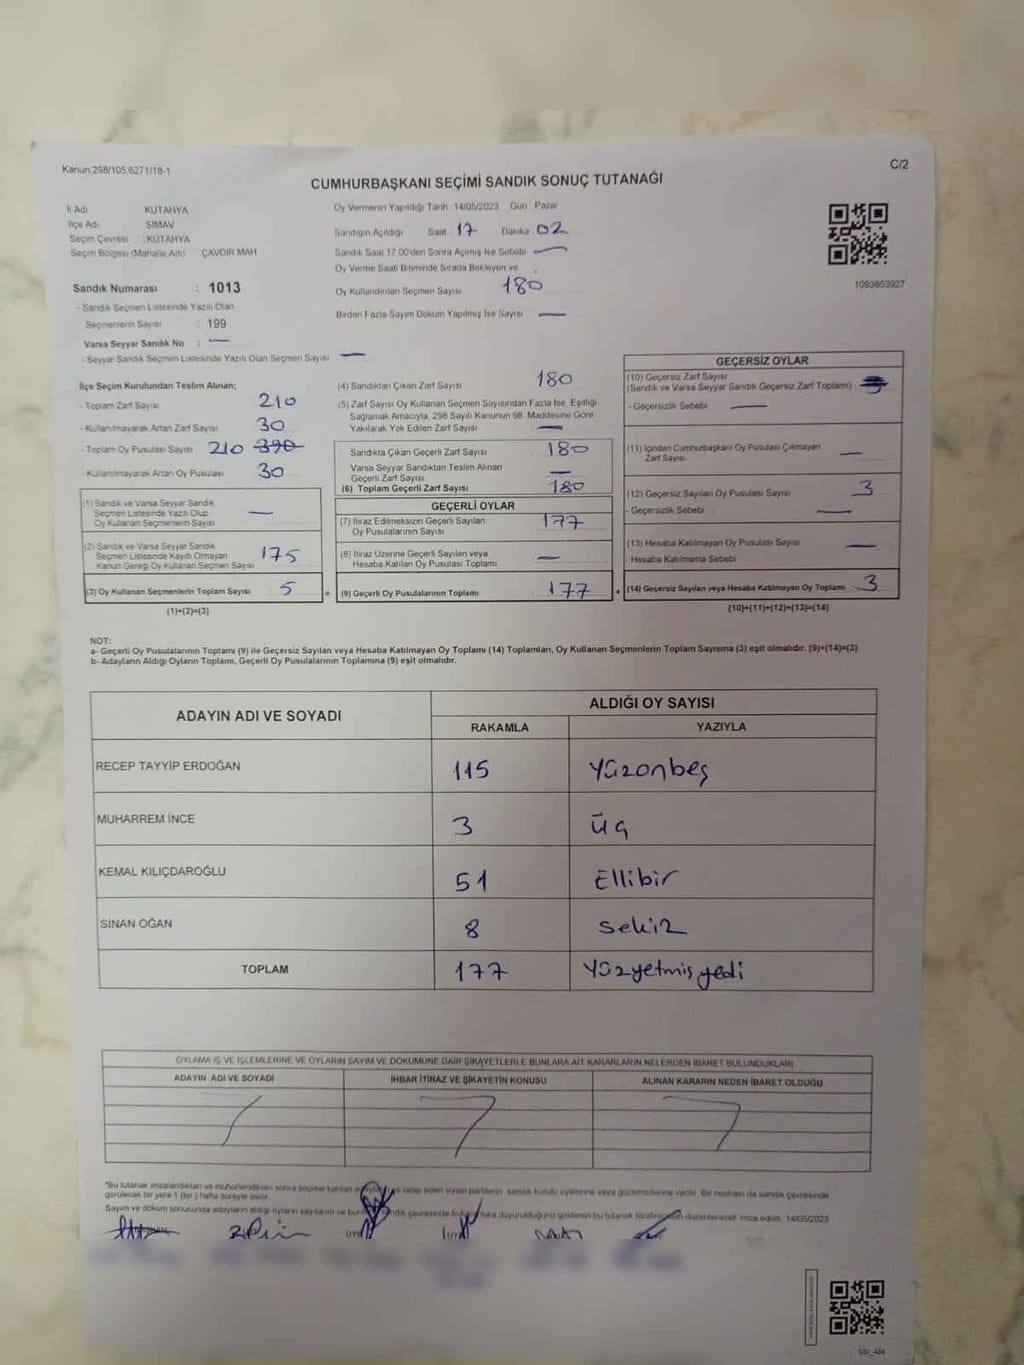 Kanun.298/105,6271/18-1
C/2
CUMHURBAŞKANI SEÇİMİ SANDIK SONUÇ TUTANAĞI
İl Adı KÜTAHYA
İlçe Adı SİMAV
Seçim Çevresi :KÜTAHYA
Seçim Bölgesi (Mahalle Adı) ÇAVDIR MAH
Sandık Numarası : 1013
- Sandık Seçmen Listesinde Yazılı Olan
Seçmenlerin Sayısı : 199
Varsa Seyyar Sandık No : —
- Seyyar Sandık Seçmen Listesinde Yazılı Olan Seçmen Sayısı —
Oy Vermenin Yapıldığı Tarih :14/05/2023 Gün Pazar
Sandığın Açıldığı Saat 17 Dakika 02
Sandık Saat 17:00'den Sonra Açımış İse Sebebi —
Oy Verme Saati Bitiminde Sırada Bekleyen ve
Oy Kullandırılan Seçmen Sayısı 180
Birden Fazla Sayım Döküm Yapılmış İse Sayısı —
1093853927
İlçe Seçim Kurulundan Teslim Alınan;
- Toplam Zarf Sayısı 210
- Kullanılmayarak Artan Zarf Sayısı 30
- Toplam Oy Pusulası Sayısı 210 390
- Kullanılmayarak Artan Oy Pusulası 30
(1) Sandık ve Varsa Seyyar Sandık
Seçmen Listesinde Yazılı Olup
Oy Kullanan Seçmenlerin Sayısı —
(2) Sandık ve Varsa Seyyar Sandık
Seçmen Listesinde Kayıtlı Olmayan
Kanun Gereği Oy Kullanan Seçmen Sayısı 175
(3) Oy Kullanan Seçmenlerin Toplam Sayısı 5 =
(1)+(2)=(3)
(4) Sandıktan Çıkan Zarf Sayısı 180
(5) Zarf Sayısı Oy Kullanan Seçmen Sayısından Fazla İse, Eşitliği
Sağlamak Amacıyla, 298 Sayılı Kanunun 98. Maddesine Göre
Yakılarak Yok Edilen Zarf Sayısı —
Sandıkta Çıkan Geçerli Zarf Sayısı 180
Varsa Seyyar Sandıktan Teslim Alınan
Geçerli Zarf Sayısı —
(6) Toplam Geçerli Zarf Sayısı 180
GEÇERLİ OYLAR
(7) İtiraz Edilmeksizin Geçerli Sayılan
Oy Pusulalarının Sayısı 177
(8) İtiraz Üzerine Geçerli Sayılan veya
Hesaba Katılan Oy Pusulası Toplamı —
(9) Geçerli Oy Pusulalarının Toplamı 177 +
GEÇERSİZ OYLAR
(10) Geçersiz Zarf Sayısı
(Sandık ve Varsa Seyyar Sandık Geçersiz Zarf Toplamı)
- Geçersizlik Sebebi —
(11) İçinden Cumhurbaşkanı Oy Pusulası Çıkmayan
Zarf Sayısı —
(12) Geçersiz Sayılan Oy Pusulası Sayısı 3
- Geçersizlik Sebebi —
(13) Hesaba Katılmayan Oy Pusulası Sayısı —
- Hesaba Katılmama Sebebi
(14) Geçersiz Sayılan veya Hesaba Katılmayan Oy Toplamı 3
(10)+(11)+(12)+(13)=(14)
NOT:
a- Geçerli Oy Pusulalarının Toplamı (9) ile Geçersiz Sayılan veya Hesaba Katılmayan Oy Toplamı (14) Toplamları, Oy Kullanan Seçmenlerin Toplam Sayısına (3) eşit olmalıdır. (9)+(14)=(3)
b- Adayların Aldığı Oyların Toplamı, Geçerli Oy Pusulalarının Toplamına (9) eşit olmalıdır.
ADAYIN ADI VE SOYADI
ALDIĞI OY SAYISI
RAKAMLA YAZIYLA
RECEP TAYYİP ERDOĞAN 115 Yüzonbeş
MUHARREM İNCE 3 Üç
KEMAL KILIÇDAROĞLU 51 Ellibir
SİNAN OĞAN 8 Sekiz
TOPLAM 177 Yüzyetmişyedi
OYLAMA İŞ VE İŞLEMLERİNE VE OYLARIN SAYIM VE DÖKÜMÜNE DAİR ŞİKAYETLERLE BUNLARA AİT KARARLARIN NELERDEN İBARET BULUNDUKLARI
ADAYIN ADI VE SOYADI İHBAR İTİRAZ VE ŞİKAYETİN KONUSU ALINAN KARARIN NEDEN İBARET OLDUĞU
*Bu tutanak imzalandıktan ve mühürlendikten sonra seçime katılan talep eden siyasi partilerin sandık kurulu üyelerine veya gözlemcilerine verilir. Bir nüshası da sandık çevresinde
görülecek bir yere 1 (bir) hafta süreyle asılır.
Sayım ve döküm sonucunda adayların aldığı oyların sayılarını ve sandık çevresinde duyurulduğunu gösteren bu tutanak tarafımızdan düzenlenerek imza edildi. 14/05/2023